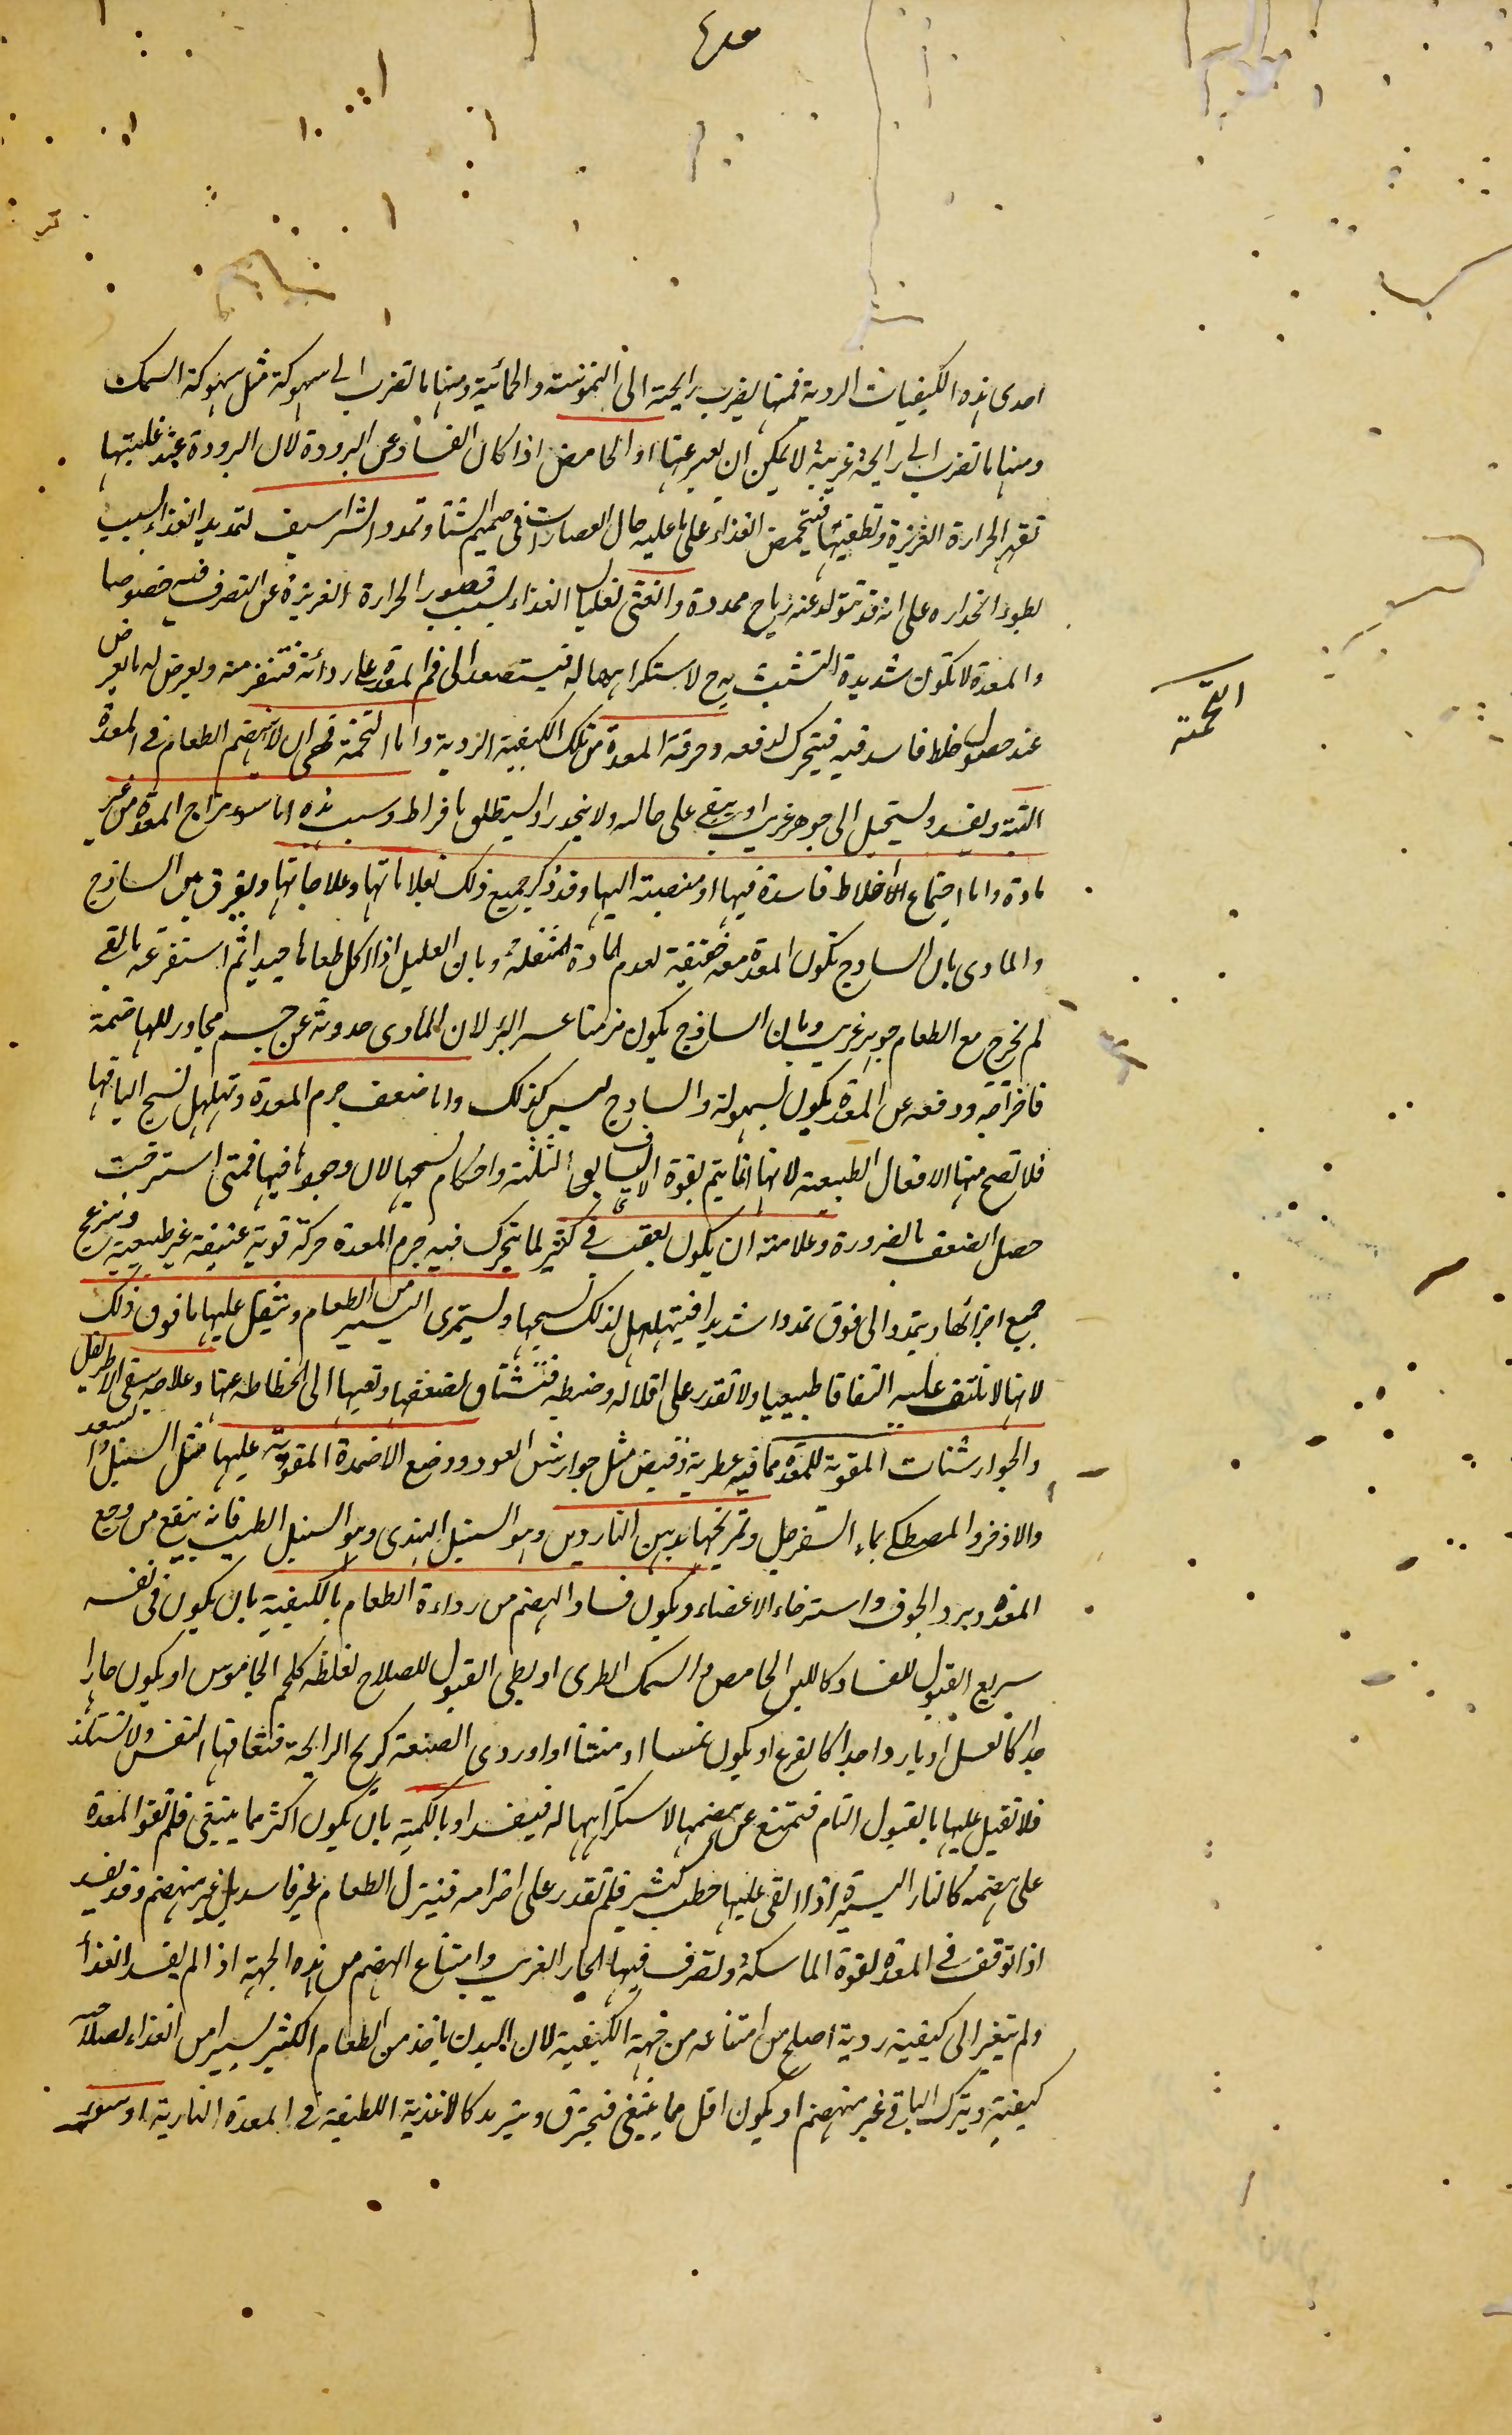 معدہ
احدى هذه الكيفيات الردية فمنها يضرب رايحته الى النموسة والحمائية ومنها ما تضرب الى سهوكة مثل سهوكة السمك
ومنها ما تضرب الى رايحة غريبة لا يمكن ان يعبر عنها او الحامض اذا كان الفساد عن البرودة لان البرودة عند غلبتها
تقهر الحرارة الغريزة وتطفئها فيتحمض الغذاء على ما عليه حال العصارات فى صميم الشتا وتمدد الشراسيف لتمديد الغذاء لسبب
لطوء انحداره على انه قد تتولد عنه رياح ممددة والغثى لغليان الغذاء لسبب قصور الحرارة الغريزة عن التصرف فيه خصوصا
والمعدة لا تكون شديدة التشبث به ح لاستكراهها له فيستصعد الى فم المعدة على ردائة فتنفر منه ويعرض له ما يعرض
عند حصول خلط فاسد فيه فيتحرك لدفعه وحرقة المعدة من تلك الكيفية الردية واما التخمة فهى ان لا ينهضم الطعام فى المعدة
التخمة
البتة ويفسد ويستحيل الى جوهر غريب او يبقى على حاله ولا ينحدر او ليستطلق بافراط وسبب هذه اما سوء مزاج المعدة من غير
مادة واما اجتماع الاخلاط فاسدة فيها او منصبة اليها وقد ذكر جميع ذلك بعلاماتها وعلاجاتها ويفرق بين الساذج
والمادى بان الساذج تكون المعدة معه خفيفة لعدم المادة المثقلة وبان العليل اذا اكل طعاما جيدا ثم استفرغه بالقى
لم يخرج مع الطعام جوهر غريب وبان الساذج يكون مزمنا عسر البرء لان المادى حدوثه عن جسم مجاور للهاضمة
فاخراجه ودفعه عن المعدة يكون لسهولة والساذج ليس كذلك واما ضعف جرم المعدة وتهلهل نسج اليافها
فلا تصح منها الافعال الطبيعية لانها انما يتم بقوة الالياف الثلثة واحكام نسجها لان وجودها فيها فمتى استرخت
حصل الضعف بالضرورة وعلامته ان يكون بعقب قئ كثير لما يتحرك فيه جرم المعدة حركة قوية عنيفة غير طبيعية وينزعج
جميع اجزائها ويتمدد الى فوق تمددا شديدا فيتهلهل لذلك نسجها وليستمرى اليسير من الطعام ويثقل عليها ما فوق ذلك
لانها لا تلتف عليه التفافا طبيعيا ولا تقدر على اقلاله وضبطه فتشتاق لضعفها وتعبها الى انحطاطه عنها وعلاجه سقى الاطريفل
والجوارشنات المقوية للمعدة مما فيه عطرية وقبض مثل جوارشن العود ووضع الاضمدة المقوية عليها مثل السنبل والسعد
والاذخر والمصطكى بماء السفرجل وتمريخها بدهن الناردين وهو السنبل الهندى وهو السنبل الطيب فانه ينفع من وجع
المعدة وبرد الجوف واسترخاء الاعضاء ويكون فساد الهضم من رداءة الطعام بالكيفية بان يكون فى نفسه
سريع القبول للفساد كاللبن الحامض والسمك الطرى او بطى القبول للصلاح لغلظه كلحم الجاموس او يكون حارا
جدا كالعسل او باردا جدا كالقرع او يكون عفنا او منتنا او ردى الصنعة كريح الرايحة فتعافها النفس ولا تستلذ
فلا تقبل عليها بالقبول التام فتمتنع عن هضمها لاستكراهها له فيفسد او بالكمية بان يكون اكثر مما ينبغى فلم تقو المعدة
على هضمه كالنار اليسيرة اذا القى عليها حطب كثير فلم تقدر على اضرامه فينزل الطعام غير فاسد بل غير منهضم وقد يفسد
اذا توقف فى المعدة لقوة الماسكة ولتصرف فيها الحار الغريب وامتناع الهضم من هذه الجهة اذا لم يفسد الغذا
ولم يتغير الى كيفية ردية اصلح من امتناعه من جهة الكيفية لان البدن ياخذ من الطعام الكثير يسيرا من الغذاء لصلاحية
كيفيته ويترك الباقى غير منهضم او يكون اقل مما ينبغى فيحترق ويترمد كالاغذية اللطيفة فى المعدة النارية او سوء